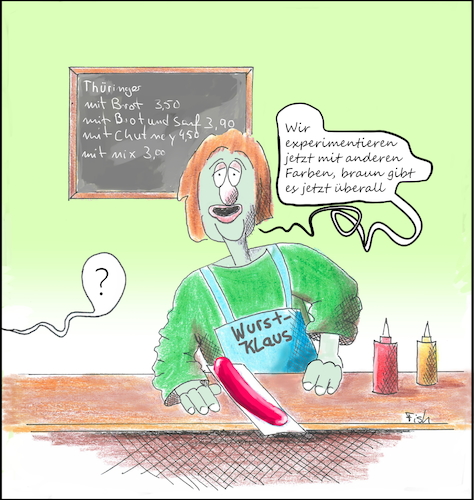 Thüringer
mit Brot 3,50
mit Brot und Senf 3,90
mit Chutney 4,50
mit nix 3,00
Wir
experimentieren
jetzt mit anderen
Farben, braun gibt
es jetzt überall
?
Wurst-
Klaus
Fish